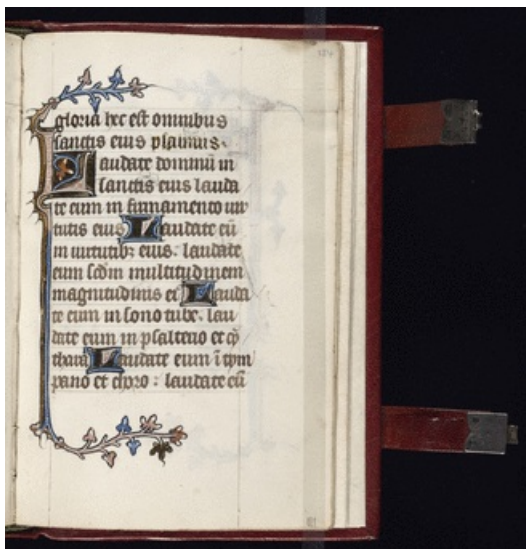 gloria hec est omnibus
sanctis eius psalmus.
Laudate dominū in
sanctis eius lauda
te eum in firmamento uir
tutis eius Laudate eū
in uirtutibꝫ eius. laudate
eum scdm multitudinem
magnitudinis ei Lauda
te eum in sono tube. lau
date eum in psalterio et cy
thara Laudate eum ī tym
pano et choro : laudate eū